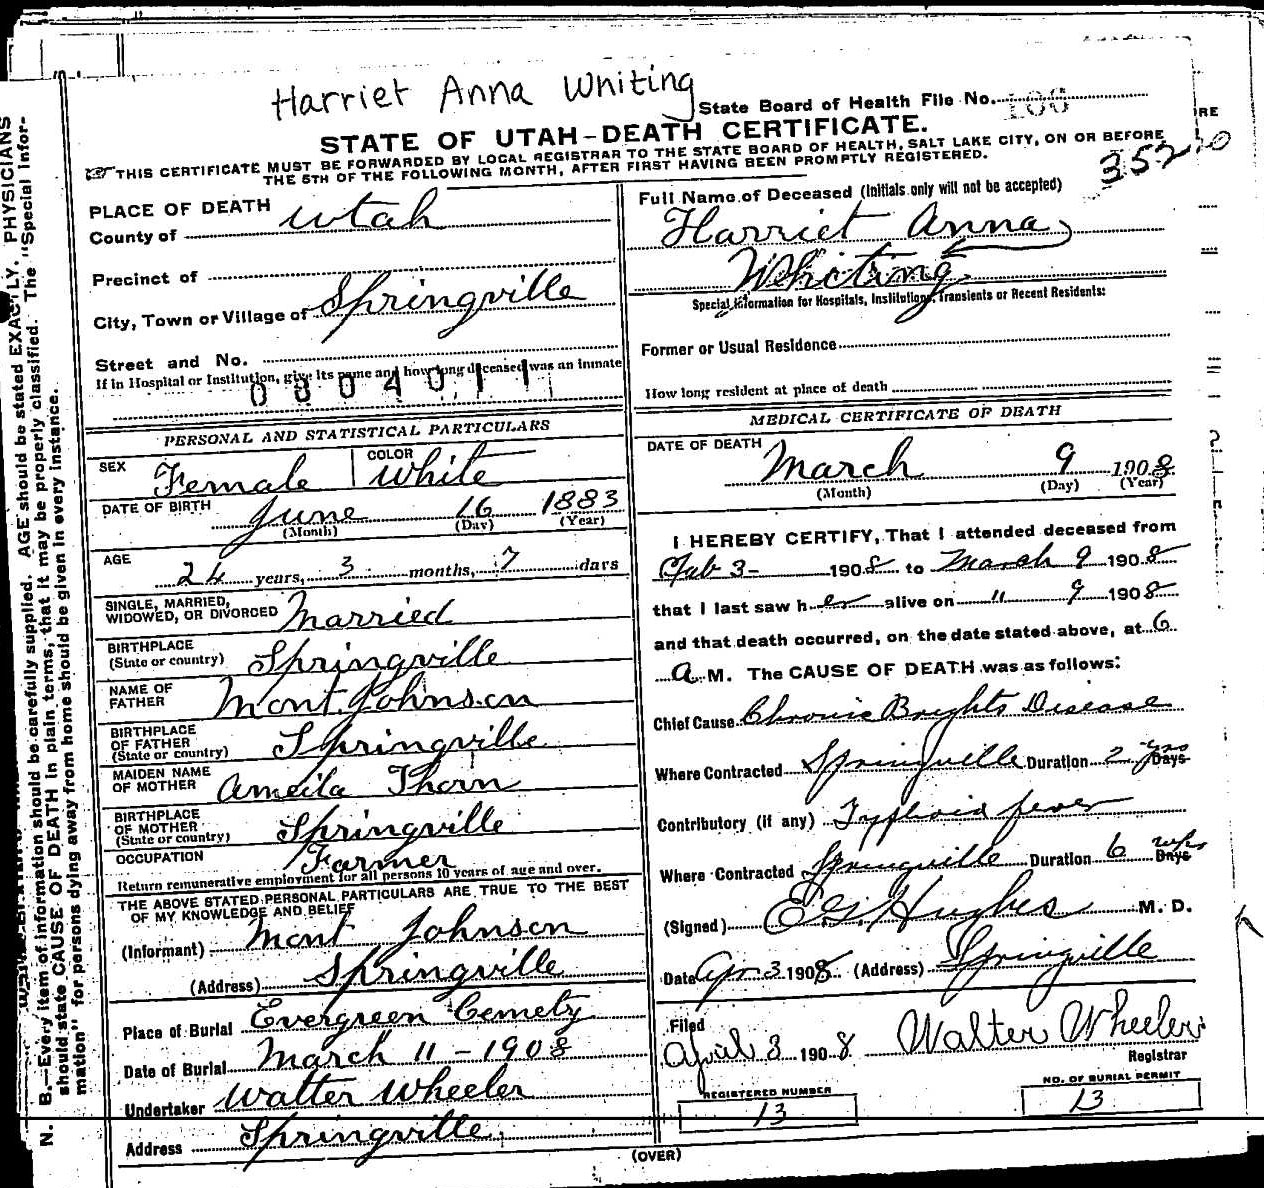 Harriet Anna Whiting
State Board of Health File No. 106
STATE OF UTAH–DEATH CERTIFICATE.
THIS CERTIFICATE MUST BE FORWARDED BY LOCAL REGISTRAR TO THE STATE BOARD OF HEALTH, SALT LAKE CITY, ON OR BEFORE
THE 5TH OF THE FOLLOWING MONTH, AFTER FIRST HAVING BEEN PROMPTLY REGISTERED.
352
PLACE OF DEATH
County of Utah
Precinct of
City, Town or Village of Springville
Street and No.
If in Hospital or Institution, give its name and how long deceased was an inmate
0804011
PERSONAL AND STATISTICAL PARTICULARS
SEX Female COLOR White
DATE OF BIRTH June 16 1883
(Month) (Day) (Year)
AGE 24 years, 3 months, 7 days
SINGLE, MARRIED,
WIDOWED, OR DIVORCED Married
BIRTHPLACE
(State or country) Springville
NAME OF
FATHER Mont Johnson
BIRTHPLACE
OF FATHER
(State or country) Springville
MAIDEN NAME
OF MOTHER Ameila Thorn
BIRTHPLACE
OF MOTHER
(State or country) Springville
OCCUPATION Farmer
Return remunerative employment for all persons 10 years of age and over.
THE ABOVE STATED PERSONAL PARTICULARS ARE TRUE TO THE BEST
OF MY KNOWLEDGE AND BELIEF
(Informant) Mont Johnson
(Address) Springville
Place of Burial Evergreen Cemety
Date of Burial March 11 - 1908
Undertaker Walter Wheeler
Address Springville
Full Name of Deceased (Initials only will not be accepted)
Harriet Anna
Whiting
Special Information for Hospitals, Institutions, Transients or Recent Residents:
Former or Usual Residence
How long resident at place of death
MEDICAL CERTIFICATE OF DEATH
DATE OF DEATH March 9 1908
(Month) (Day) (Year)
I HEREBY CERTIFY, That I attended deceased from
Feb 3- 1908 to March 9 1908
that I last saw her alive on " 9 1908
and that death occurred, on the date stated above, at 6
A M. The CAUSE OF DEATH was as follows:
Chief Cause Chronic Brights Disease
Where Contracted Springville Duration 2 yrs Days
Contributory (if any) Typhoid fever
Where Contracted Springville Duration 6 wks Days
(Signed) E.G. Hughes M. D.
Date Apr 3 1908 (Address) Springville
Filed
April 3 1908 Walter Wheeler
Registrar
REGISTERED NUMBER
13
NO. OF BURIAL PERMIT
13
(OVER)
N. B.—Every item of information should be carefully supplied. AGE should be stated EXACTLY. PHYSICIANS
should state CAUSE OF DEATH in plain terms, that it may be properly classified. The "Special Infor-
mation" for persons dying away from home should be given in every instance.